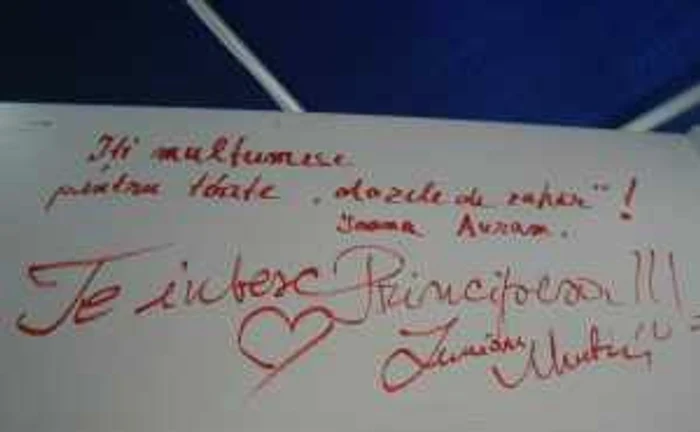 Iti multumesc
pentru toate "dozele de zahar"!
Ioana Avram.
Te iubesc Principesa!!!